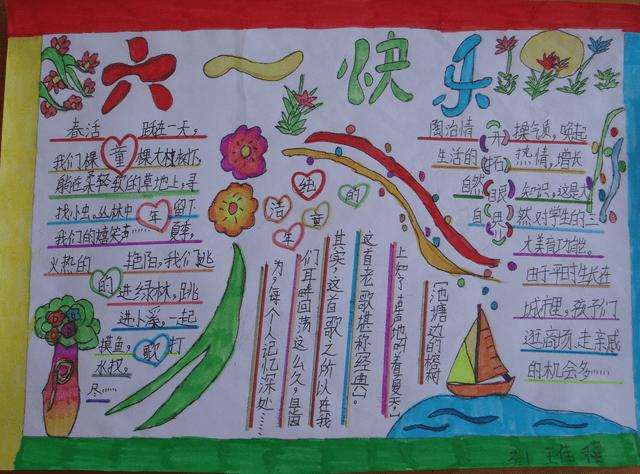 六一快乐
春活 跃在一天,
我们裸 童 棵大树树下,
躺在柔轻软的草地上,寻
找小虫,丛林中 年 留下
我们的嬉笑声…… 夏季,
火热的 艳阳,我们跳
的 进绿林,跳
进小溪,一起
摸鱼, 歌 打
水杈,
尽……
纯洁的
童年
《池塘边的榕树
上知了声声地叫着夏天,》
这首老歌堪称经典。
其实,这首歌之所以在我
们耳畔回荡这么久,是因
为,每个人记忆深处……
开拓眼界
陶冶情 操气质,唤起
生活的 热情,增长
自然 知识,这是大
自 然对学生的三
大美育功能。
由于平时生长在
城市里,孩子们
逛商场、走亲戚
的机会多……